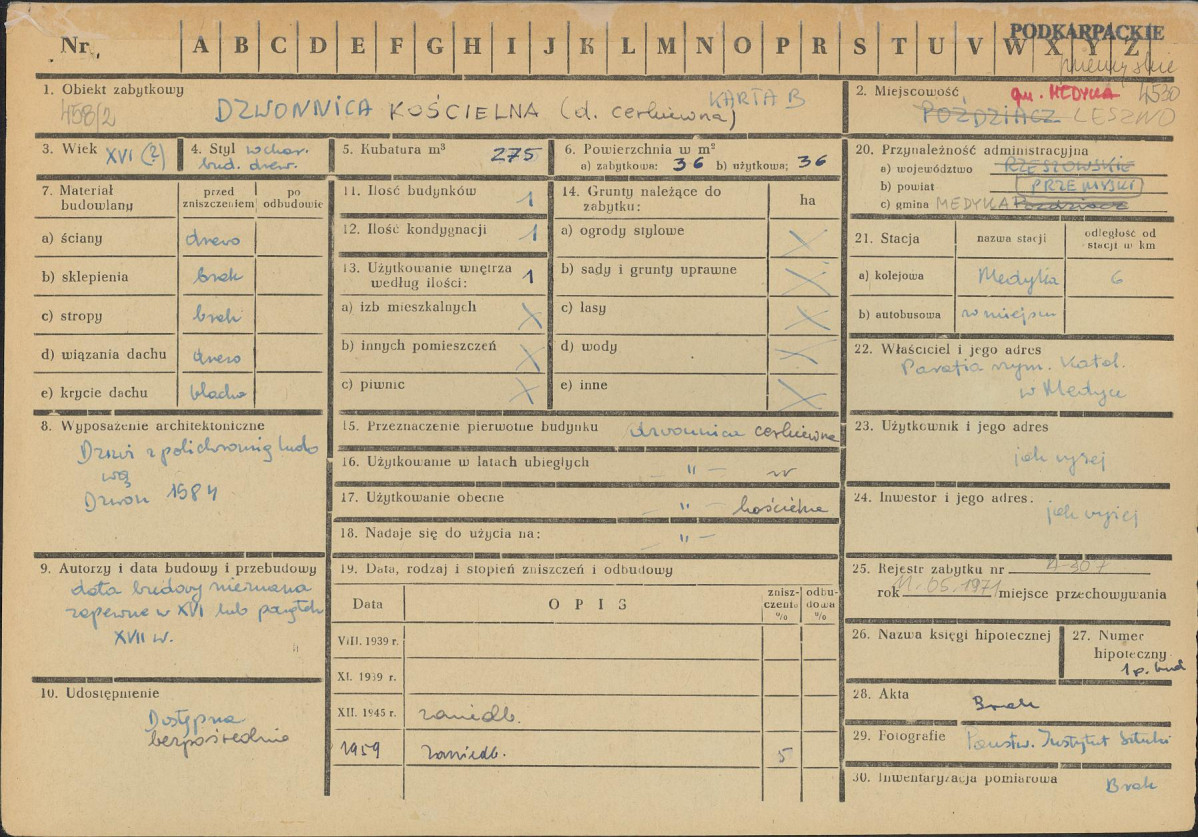 Nr. A B C D E F G H I J K L M N O P R S T U V W X Y Z
PODKARPACKIE
przemyskie
1. Obiekt zabytkowy
458/2
DZWONNICA KOŚCIELNA (d. cerkiewna)
KARTA B
2. Miejscowość
gm. MEDYKA 4530
POŹDZIACZ LESZNO
3. Wiek XVI (?)
4. Styl wschor.
bud. drew.
5. Kubatura m³ 275
6. Powierzchnia w m²
a) zabytkowa: 36 b) użytkowa: 36
7. Materiał budowlany
przed zniszczeniem
po odbudowie
a) ściany drewo
b) sklepienia brak
c) stropy brak
d) wiązania dachu drewo
e) krycie dachu blacha
8. Wyposażenie architektoniczne
Drzwi z polichromią ludo
wą
Dzwon 1584
9. Autorzy i data budowy i przebudowy
data budowy nieznana
zapewne w XVI lub początek
XVII w.
10. Udostępnienie
Dostępna
bezpośrednio
11. Ilość budynków 1
12. Ilość kondygnacji 1
13. Użytkowanie wnętrza według ilości: 1
a) izb mieszkalnych X
b) innych pomieszczeń X
c) piwnic X
14. Grunty należące do zabytku: ha
a) ogrody stylowe X
b) sady i grunty uprawne X
c) lasy X
d) wody X
e) inne X
15. Przeznaczenie pierwotne budynku dzwonnica cerkiewna
16. Użytkowanie w latach ubiegłych – " –
17. Użytkowanie obecne – " – kościelna
18. Nadaje się do użycia na: – " –
19. Data, rodzaj i stopień zniszczeń i odbudowy
Data
OPIS
zniszczenia %
odbudowa %
VIII. 1939 r.
XI. 1939 r.
XII. 1945 r. zaniedb.
1959 zaniedb. 5
20. Przynależność administracyjna
a) województwo RZESZOWSKIE
b) powiat PRZEMYSKI
c) gmina MEDYKA Poździacz
21. Stacja
nazwa stacji
odległość od stacji w km
a) kolejowa Medyka 6
b) autobusowa w miejscu
22. Właściciel i jego adres
Parafia rzym. katol.
w Medyce
23. Użytkownik i jego adres
jak wyżej
24. Inwestor i jego adres:
jak wyżej
25. Rejestr zabytku nr A-307
rok 11.05.1971 miejsce przechowywania
26. Nazwa księgi hipotecznej
27. Numer hipoteczny
1 p. bud
28. Akta Brak
29. Fotografie Państw. Instytut Sztuki
30. Inwentaryzacja pomiarowa
Brak